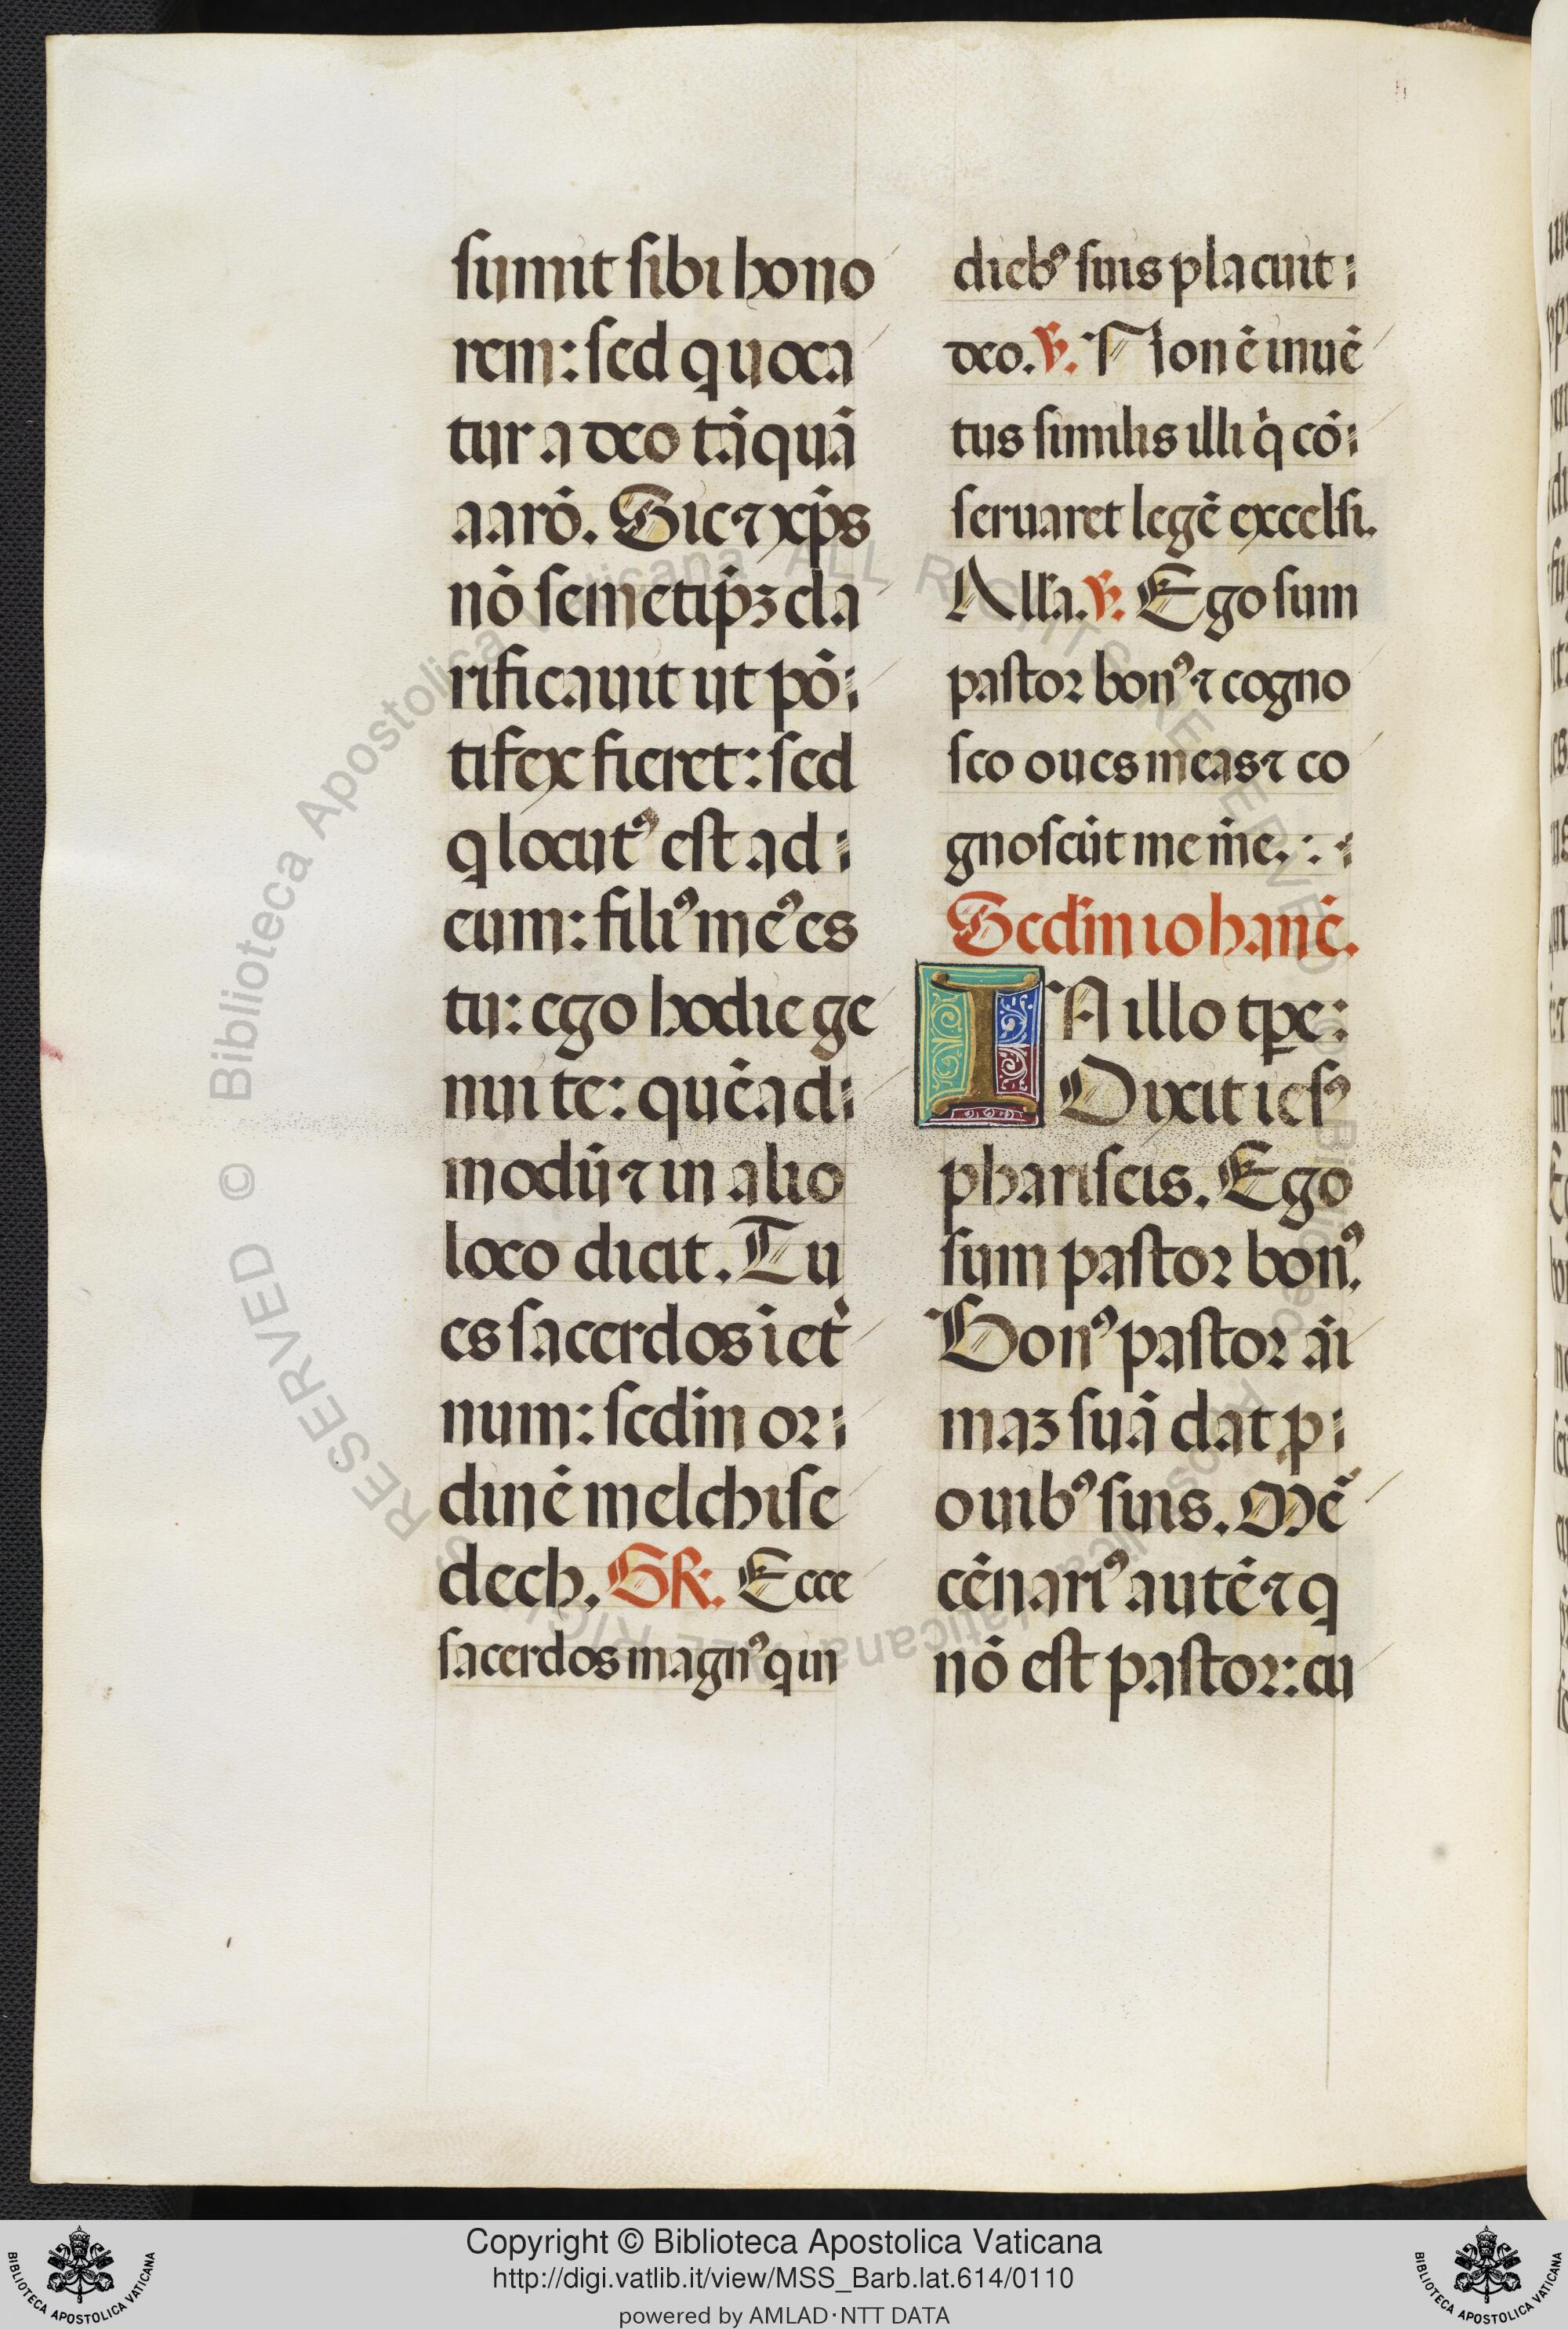 sumit sibi hono
rem: sed q uoca
tur a deo tāquā
aarō. Sic ⁊ xp̄s
nō semetip̄ꝫ cla
rificauit ut pō
tifex fieret: sed
q locutꝰ est ad
eum: filiꝰ meꝰ es
tu: ego hodie ge
nui te: quēad
modū ⁊ in alio
loco dicit. Tu
es sacerdos ī et̄
num: scdm̄ or
dinē melchise
dech. GR. Ecce
sacerdos magnꝰ q in
diebꝰ suis placuit
deo. ℣. Non ē inuē
tus similis illi q̇ cō
seruaret legē excelsi.
Alla. ℣. Ego sum
pastor bonꝰ ⁊ cogno
sco oues meas ⁊ co
gnoscūt me m̄e.
Scdm̄ iohanē.
IN illo tp̄e:
Dixit iesꝰ
phariseis. Ego
sum pastor bonꝰ.
Bonꝰ pastor āi
maꝫ suā dat ꝓ
ouibꝰ suis. Mē
cēnariꝰ autē ⁊ q
nō est pastor: cu
© Biblioteca Apostolica Vaticana ALL RIGHTS RESERVED
Copyright © Biblioteca Apostolica Vaticana
http://digi.vatlib.it/view/MSS_Barb.lat.614/0110
powered by AMLAD·NTT DATA
BIBLIOTECA APOSTOLICA VATICANA
BIBLIOTECA APOSTOLICA VATICANA